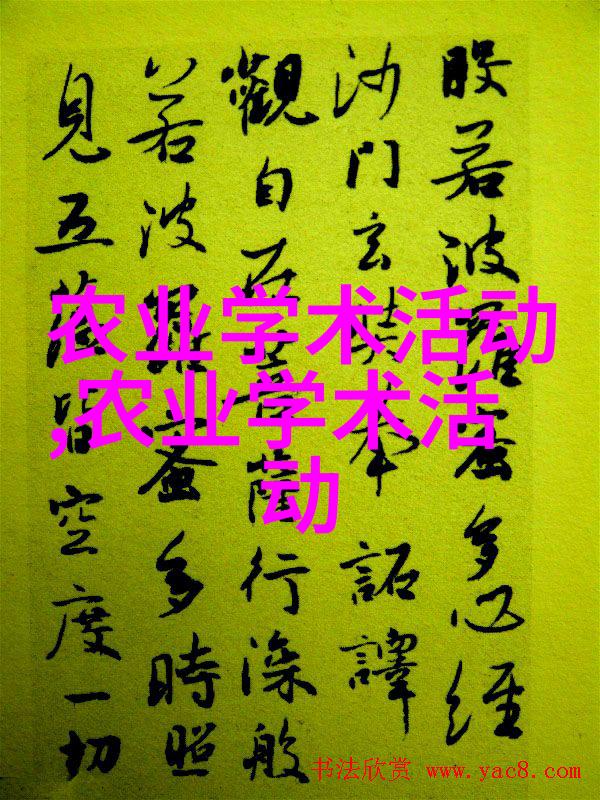 般若波羅蜜多心經
沙門玄奘奉 詔譯
觀自在菩薩行深般
若波羅蜜多時照
見五蘊皆空度一切
农业学术活动
,农业学术活
动
书法欣赏 www.yac8.com